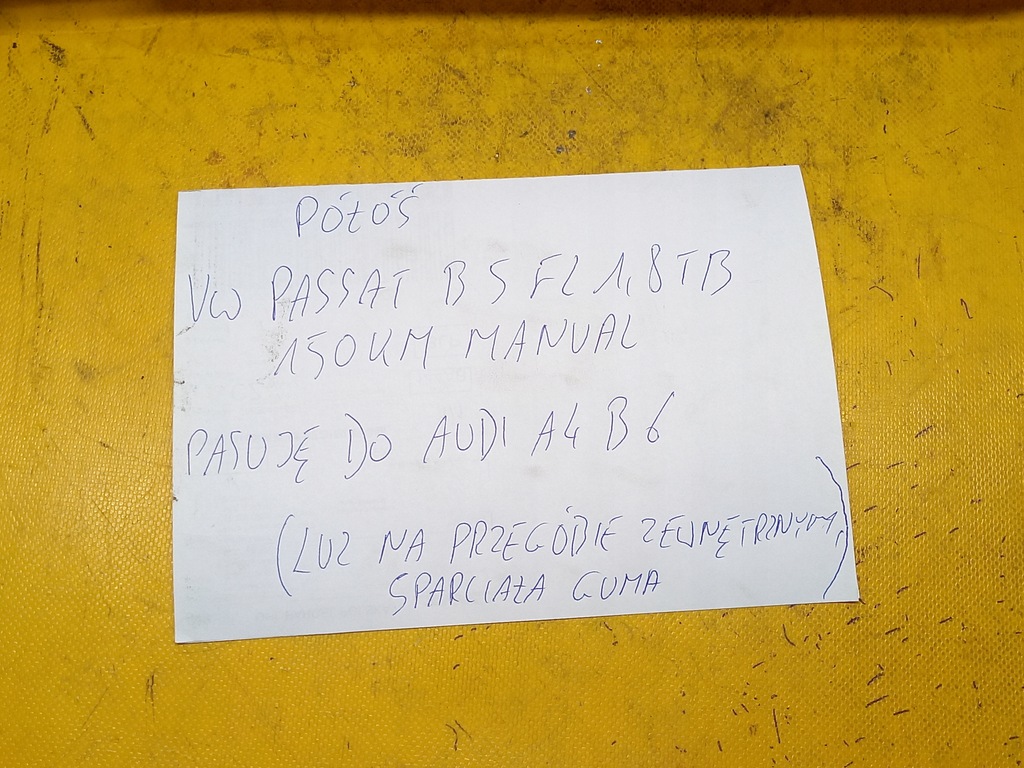 PÓŁÓŚ
VW PASSAT B5 FL 1,8TB
150KM MANUAL
PASUJĘ DO AUDI A4 B6
(LUZ NA PRZEGÓBIE ZEWNĘTRZNYM,
SPARCIAŁA GUMA)